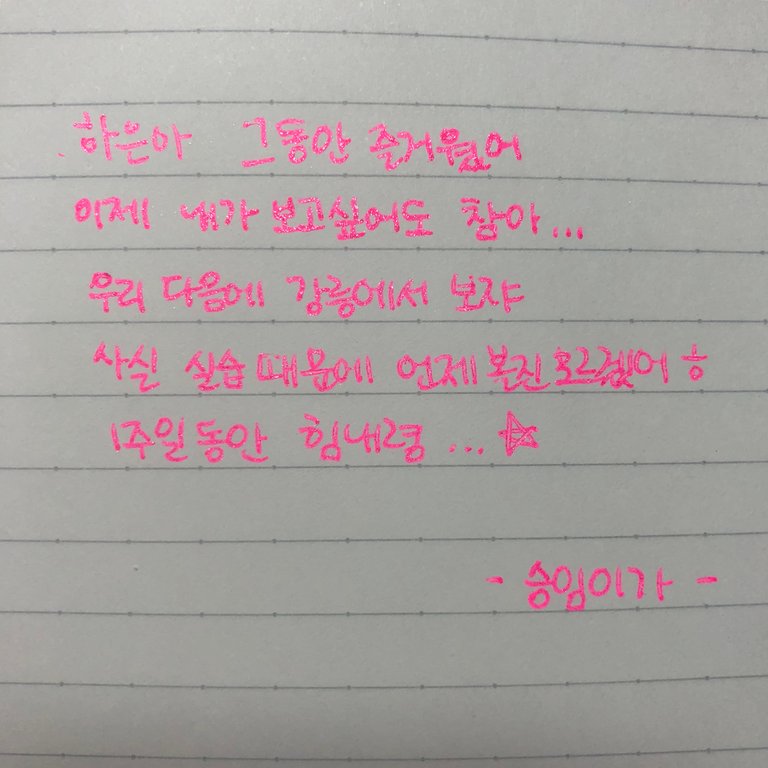 하은아 그동안 즐거웠어
이제 내가 보고싶어도 참아...
우리 다음에 강릉에서 보쟈
사실 실습때문에 언제볼진 모르겠어ㅎ
1주일동안 힘내령 ...☆
- 승임이가 -